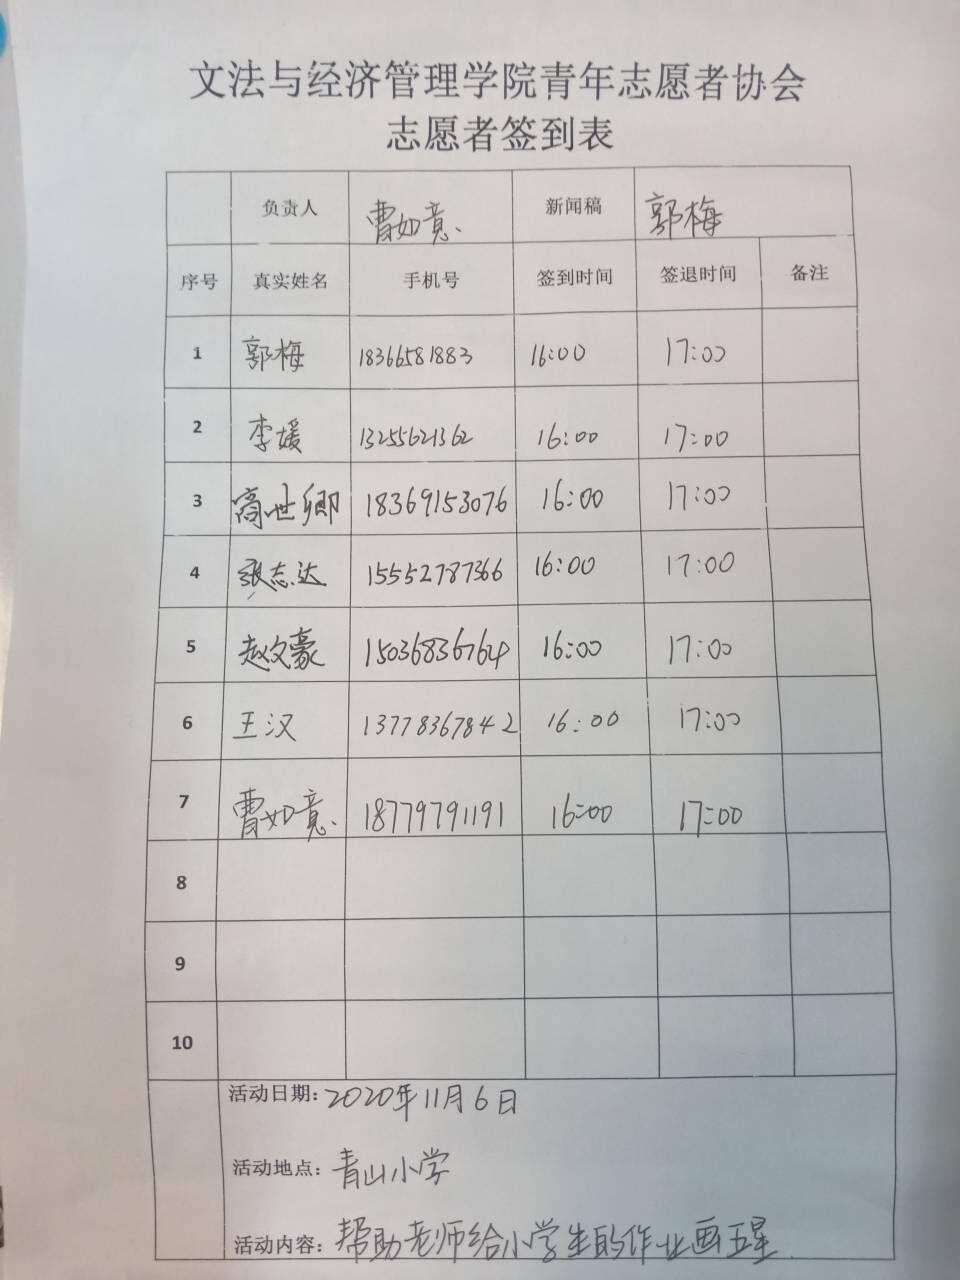 文法与经济管理学院青年志愿者协会
志愿者签到表
负责人 曹如意 新闻稿 郭梅
序号 真实姓名 手机号 签到时间 签退时间 备注
1 郭梅 18366581883 16:00 17:00
2 李媛 13255621362 16:00 17:00
3 高世卿 18369153076 16:00 17:00
4 张志达 15552787366 16:00 17:00
5 赵文豪 15036836764 16:00 17:00
6 王汉 13778367842 16:00 17:00
7 曹如意 18779791191 16:00 17:00
8
9
10
活动日期:2020年11月6日
活动地点:青山小学
活动内容:帮助老师给小学生的作业画五星